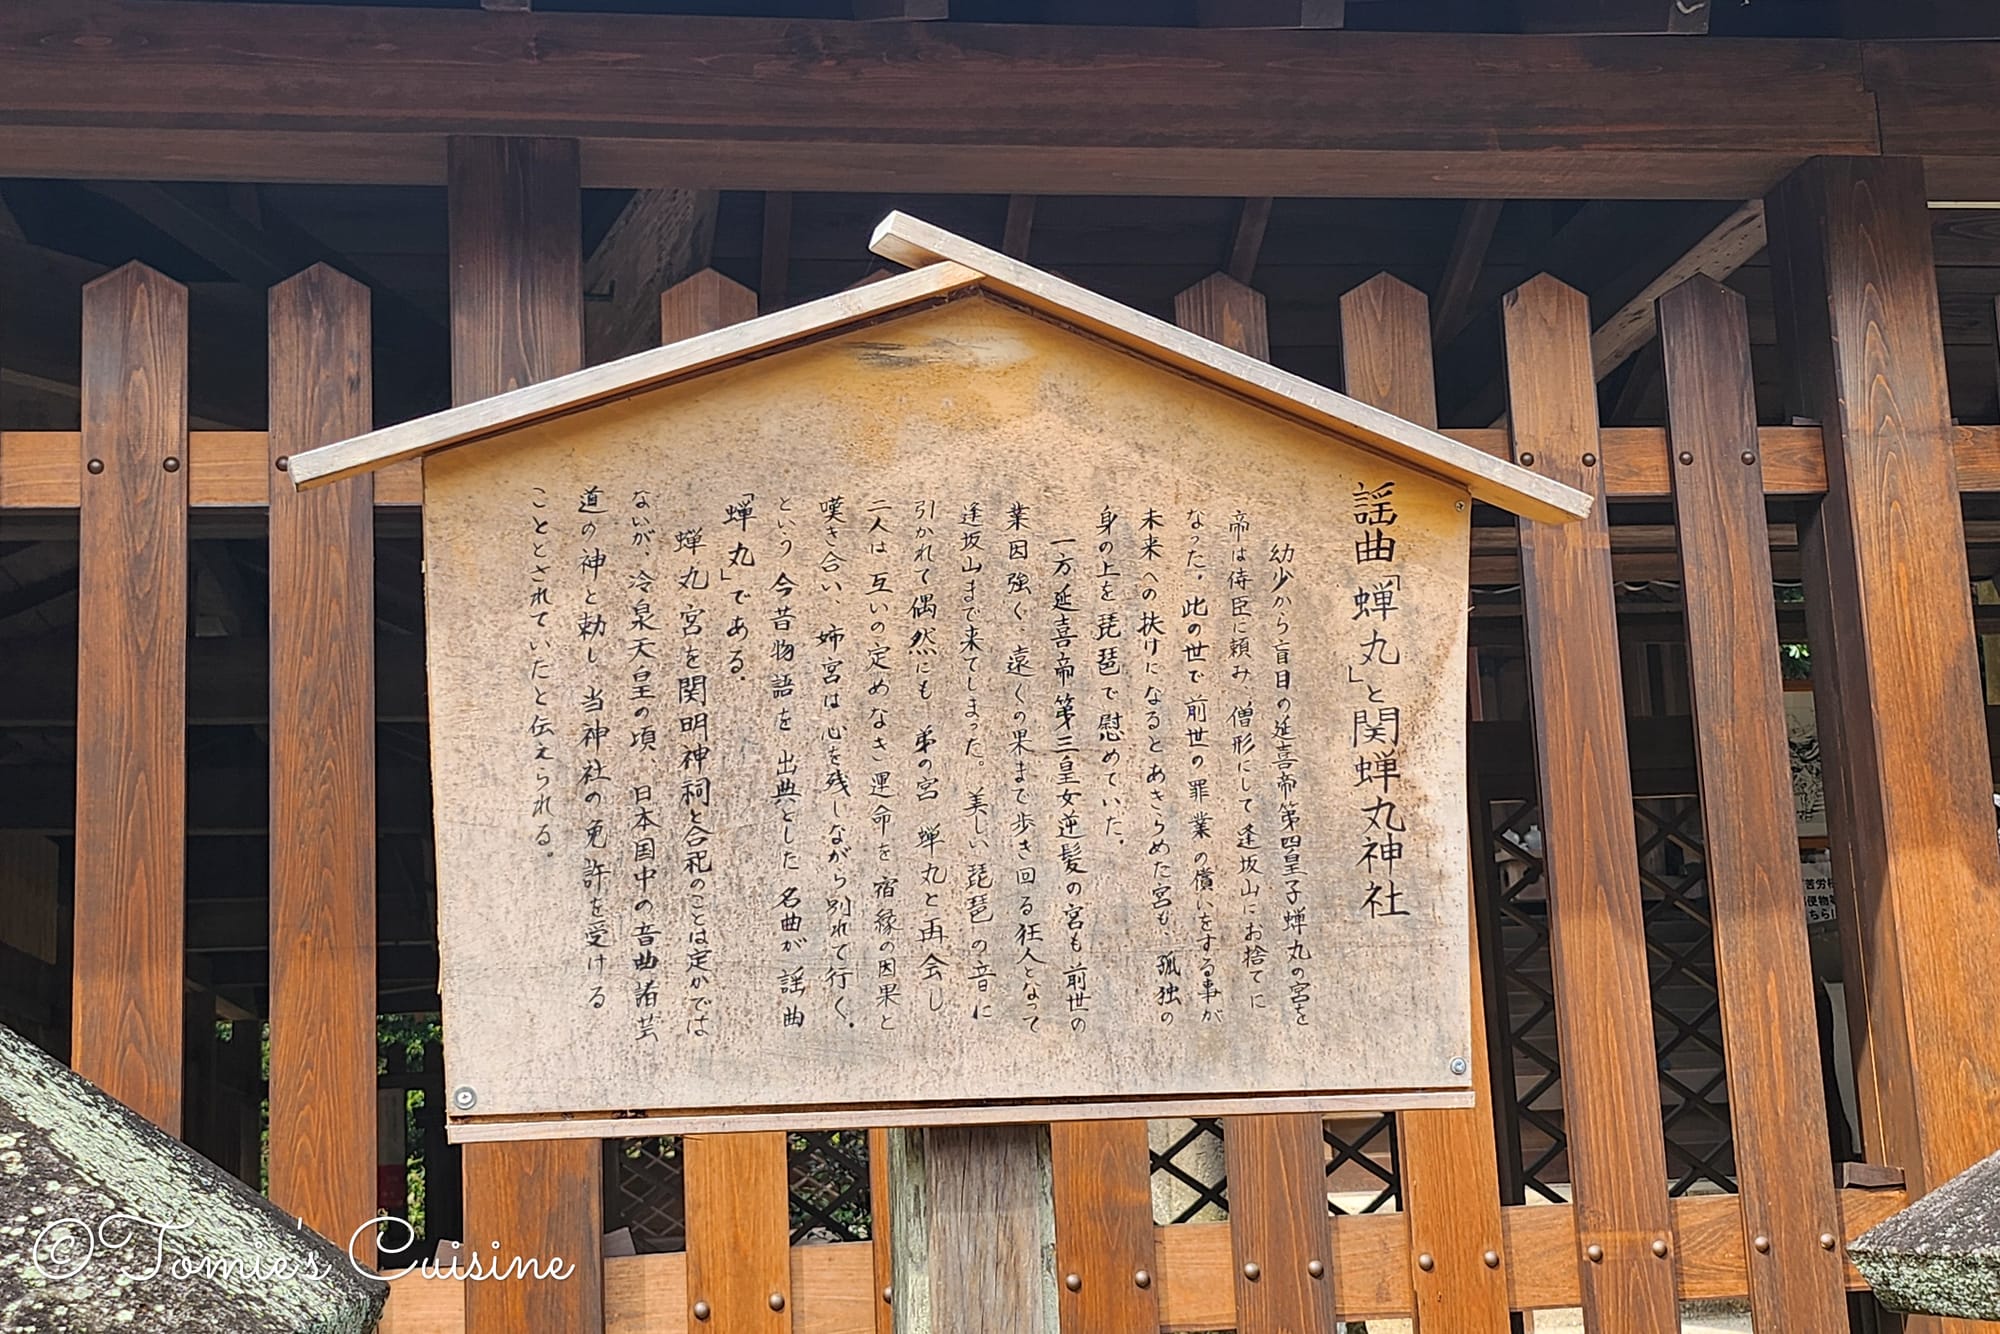 謡曲「蝉丸」と関蝉丸神社
幼少から盲目の延喜帝第四皇子蝉丸の宮を
帝は侍臣に頼み、僧形にして逢坂山にお捨てに
なった。此の世で前世の罪業の償いをする事が
未来への扶けになるとあきらめた宮も、孤独の
身の上を琵琶で慰めていた。
一方延喜帝第三皇女逆髪の宮も前世の
業因強く、遠くの果まで歩き回る狂人となって
逢坂山まで来てしまった。美しい琵琶の音に
引かれて偶然にも弟の宮 蝉丸と再会し
二人は互いの定めなき運命を宿縁の因果と
嘆き合い、姉宮は心を残しながら別れて行く。
という今昔物語を出典とした名曲が謡曲
「蝉丸」である。
蝉丸宮を関明神祠と合祀のことは定かでは
ないが、冷泉天皇の頃、日本国中の音曲諸芸
道の神と勅し当神社の免許を受ける
こととされていたと伝えられる。
©Tomie's Cuisine